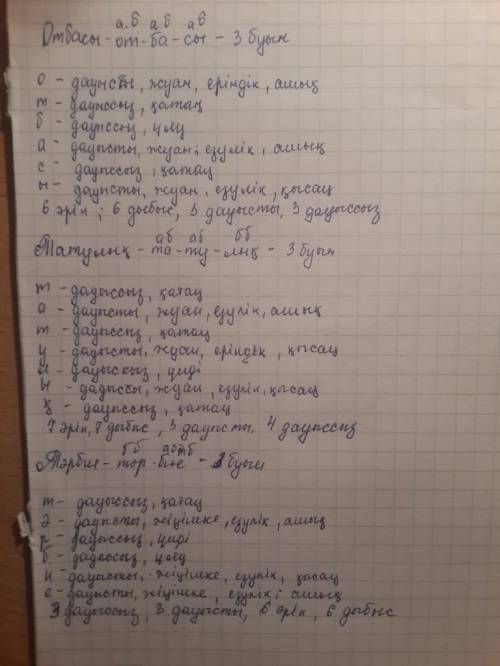 а.б а.б а б
Отбасы - от - ба - сы - 3 буын
о - дауысты, жуан, еріндік, ашық
т - дауыссыз, қатаң
б - дауыссыз, ұяң
а - дауысты, жуан, езулік, ашық
с - дауыссыз, қатаң
ы - дауысты, жуан, езулік, қысаң
6 әріп, 6 дыбыс, 3 дауысты, 3 дауыссыз
аб аб бб
Татулық - та - ту - лық - 3 буын
т - дауыссыз, қатаң
а - дауысты, жуан, езулік, ашық
т - дауыссыз, қатаң
у - дауысты, жуан, еріндік, қысаң
л - дауыссыз, үнді
ы - дауысты, жуан, езулік, қысаң
қ - дауыссыз, қатаң
7 әріп, 7 дыбыс, 3 дауысты, 4 дауыссыз
Тәрбие - тәр - бие - буын
т - дауыссыз, қатаң
ә - дауысты, жіңішке, езулік, ашық
р - дауыссыз, үнді
б - дауыссыз, ұяң
и - дауысты, жіңішке, езулік, қысаң
е - дауысты, жіңішке, езулік, ашық
3 дауыссыз, 3 дауысты, 6 әріп, 6 дыбыс